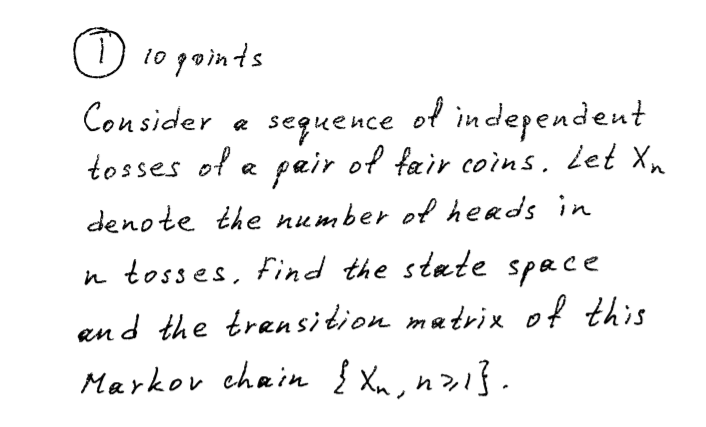 ① 10 points
Consider a sequence of independent
tosses of a pair of fair coins. Let Xn
denote the number of heads in
n tosses. Find the state space
and the transition matrix of this
Markov chain {Xn, n⩾1}.